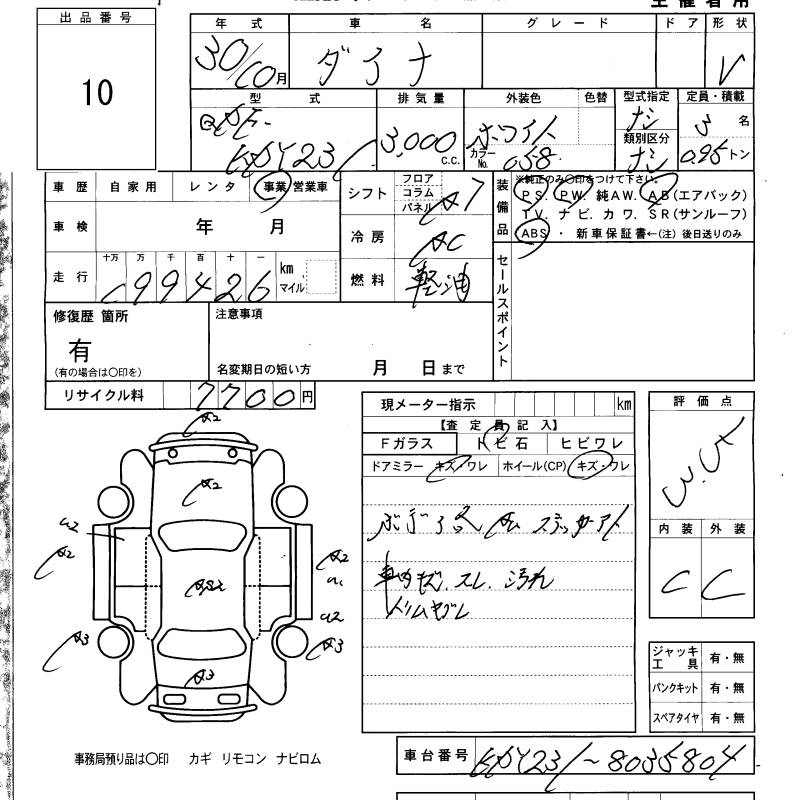 出品番号
10
年式 車名 グレード ドア 形状
30/10月 ダイナ V
型式 排気量 外装色 色替 型式指定 定員・積載
KDY231 3,000 C.C. ホワイト カラーNo. 058 ナシ 3 名
類別区分 ナシ 0.95 トン
車歴 自家用 レンタ 事業 営業車
シフト フロア コラム パネル A7
装備品 ※純正のみ〇印をつけて下さい。
PS. PW. 純AW. AB(エアバック)
TV. ナビ. カワ. SR(サンルーフ)
ABS ・ 新車保証書←(注) 後日送りのみ
車検 年 月
冷房 AC
走行 十万 万 千 百 十 一
99426 km マイル
燃料 軽油
セールスポイント
修復歴 箇所
有
(有の場合は〇印を)
注意事項
名変期日の短い方 月 日まで
リサイクル料 7700 円
現メーター指示 km
【査定員記入】
Fガラス トビ石 ヒビワレ
ドアミラー キズ/ワレ ホイール(CP) キズ・ワレ
車内キズ. スレ. 汚れ
評価点
内装 外装
C C
A2
A2
A2
A2
A3
A3
A3
ジャッキ工具 有・無
パンクキット 有・無
スペアタイヤ 有・無
事務局預り品は〇印 カギ リモコン ナビロム
車台番号 KDY231~8035804